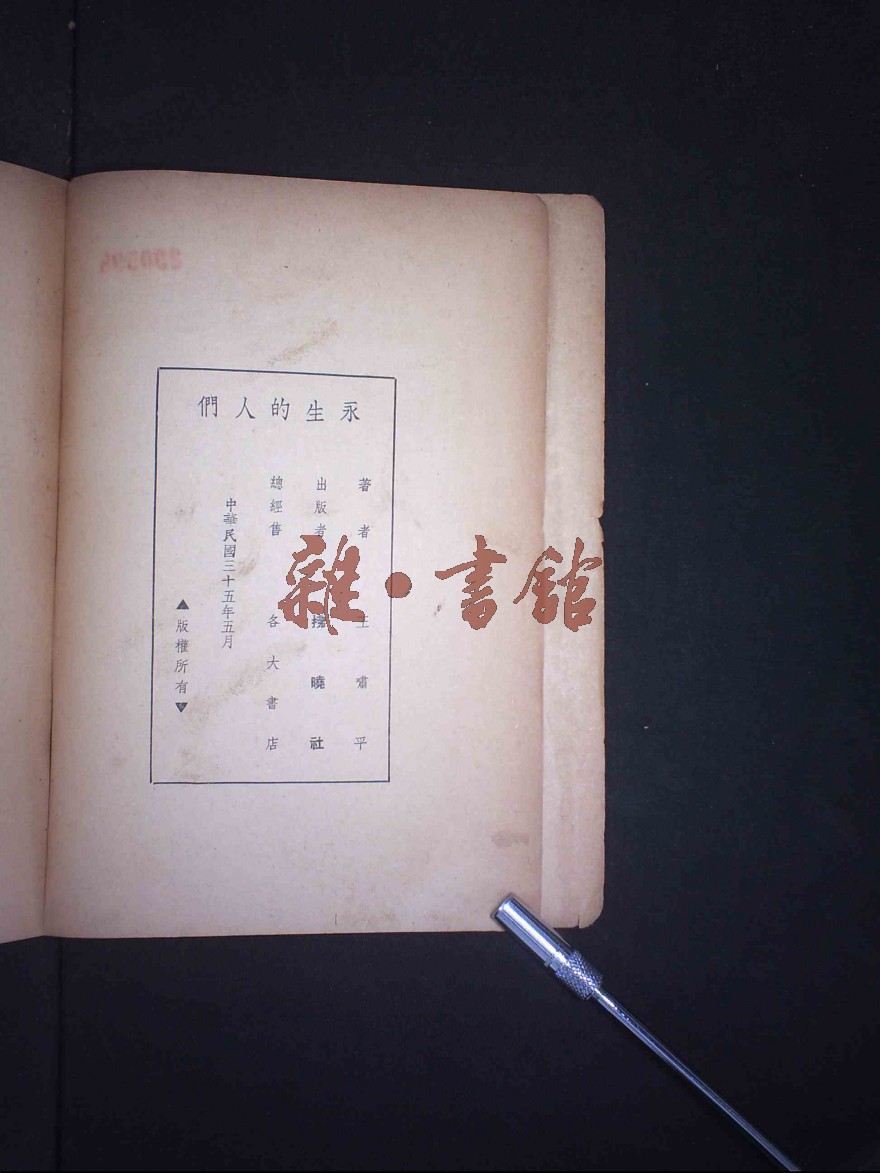 永生的人們
著者 王嘯平
出版者 曉社
總經售 各大書店
中華民國三十五年五月
▲版權所有▼
雜·書館